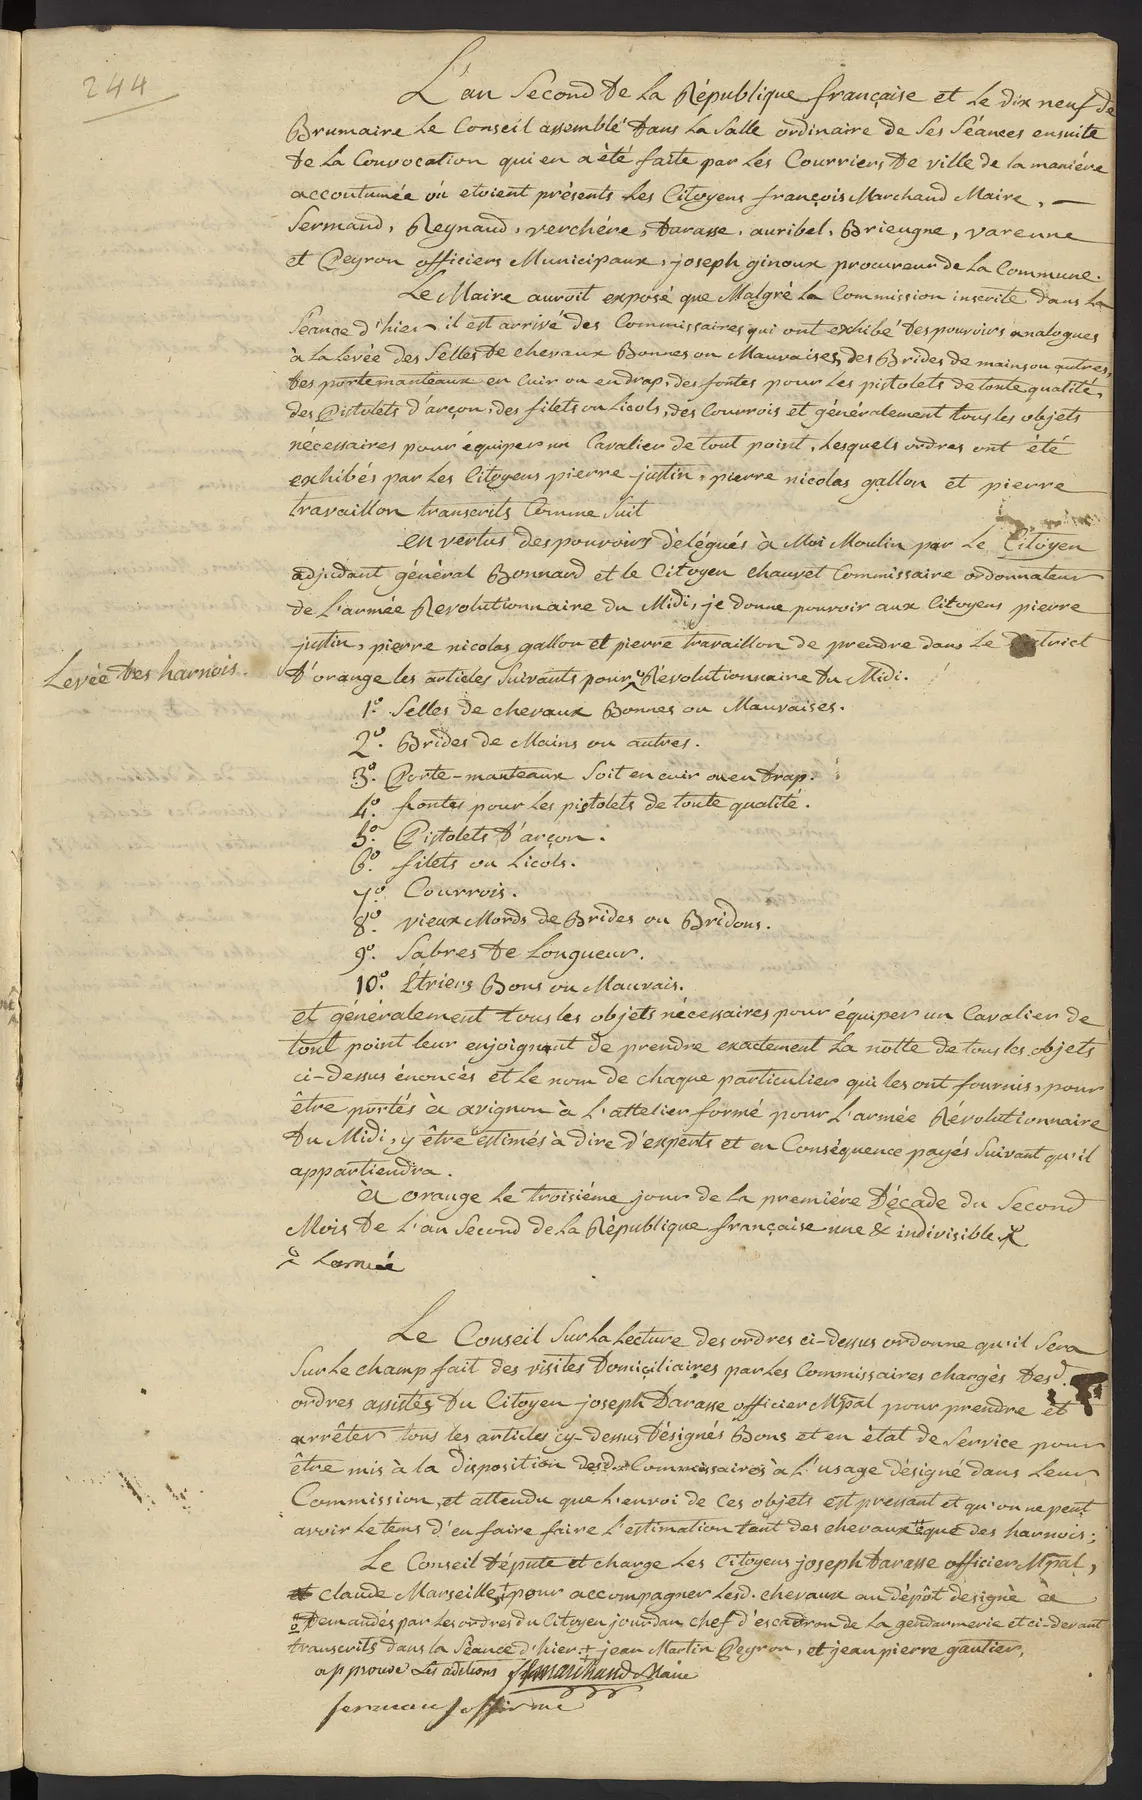 244
L'an Second de la République française et le dix neuf de
Brumaire le Conseil assemblé dans la Salle ordinaire de ses Séances ensuite
de la Convocation qui en a été faite par les Courriers de ville de la maniére
accoutumée où etoient présents les Citoyens françois Marchand Maire, —
Sermand, Reynaud, verchére, Darasse, auribel, Brieugne, varenne
et Peyron officiers Municipaux, joseph ginoux procureur de la Commune.
Le Maire auroit exposé que Malgré la Commission inscrite dans la
Séance d'hier, il est arrivé des Commissaires qui ont exhibé des pouvoirs analogues
à la levée des Sélles de chevaux Bonnes ou Mauvaises, des Brides de mains ou autres,
des portemanteaux en cuir ou en drap, des fontes pour les pistolets de toute qualité,
des Pistolets d'arçon, des filets ou licols, des Courrois et généralement tous les objets
nécessaires pour équiper un Cavalier de tout point, lesquels ordres ont été
exhibés par les Citoyens pierre justin, pierre nicolas gallon et pierre
travaillon transcrits Comme suit
en vertus des pouvoirs délégués à Moi Moulin par le Citoyen
adjudant général Bonnard et le Citoyen chauvet Commissaire ordonnateur
de l'armée Revolutionnaire du Midi, je donne pouvoir aux Citoyens pierre
justin, pierre nicolas gallon et pierre travaillon de prendre dans le District
Levée des harnois.
d'orange les articles Suivants pour Révolutionnaire du Midi.
1º. Selles de chevaux Bonnes ou Mauvaises.
2º. Brides de Mains ou autres.
3º. Porte-manteaux Soit en cuir ou en drap.
4º. fontes pour les pistolets de toute qualité.
5º. Pistolets d'arçon.
6º. filets ou Licols.
7º. Courrois.
8º. vieux Mords de Brides ou Bridons.
9º. Sabres de Longueur.
10º. Etriers Bons ou Mauvais.
et généralement tous les objets nécessaires pour équiper un Cavalier de
tout point leur enjoignant de prendre exactement la notte de tous les objets
ci-dessus énoncés et le nom de chaque particulier qui les ont fournis, pour
être portés à avignon à l'attelier formé pour l'armée Révolutionnaire
du Midi, y être estimés à dire d'experts et en Conséquence payés Suivant qu'il
appartiendra.
à orange le troisiéme jour de la premiére Décade du Second
Mois de l'an Second de la République française une & indivisible.
Larmée
Le Conseil Sur la Lecture des ordres ci-dessus ordonne qu'il Sera
Sur le champ fait des visites Domiciliaires par les Commissaires chargés desd.
ordres assistés du Citoyen joseph Darasse officier Mpal pour prendre et
arrêter tous les articles cy-dessus désignés Bons et en état de Service pour
être mis à la disposition desd. Commissaires à l'usage désigné dans leur
Commission, et attendu que l'envoi de ces objets est pressant et qu'on ne peut
avoir le tems d'en faire faire l'estimation tant des chevaux que des harnois;
Le Conseil députe et charge les Citoyens joseph Darasse officier Mpal,
et claude Marseille, pour accompagner lesd. chevaux au dépôt designé à
Demandés par les ordres du Citoyen jourdan chef d'escadron de la gendarmerie et ci-devant
transcrits dans la Séance d'hier ‡ jean Martin Peyron, et jean pierre gautier,
approuvé les aditions f. marchand Maire
sermand off. mu